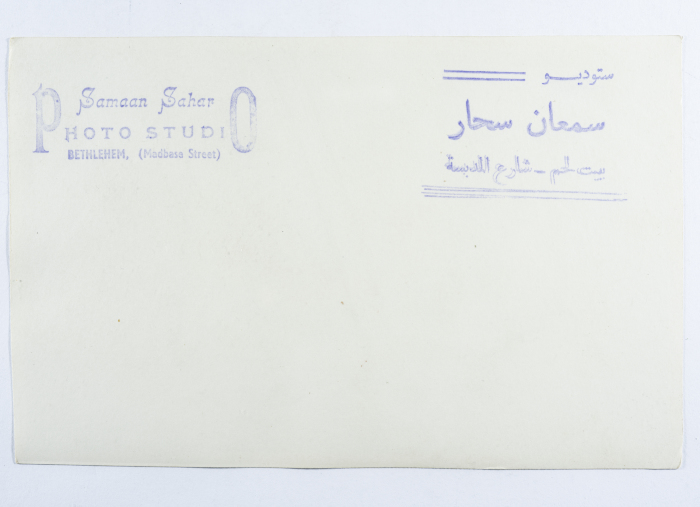 Samaan Sahar
PHOTO STUDIO
BETHLEHEM, (Madbasa Street)
ستوديو
سمعان سحار
بيت لحم - شارع المدبسة